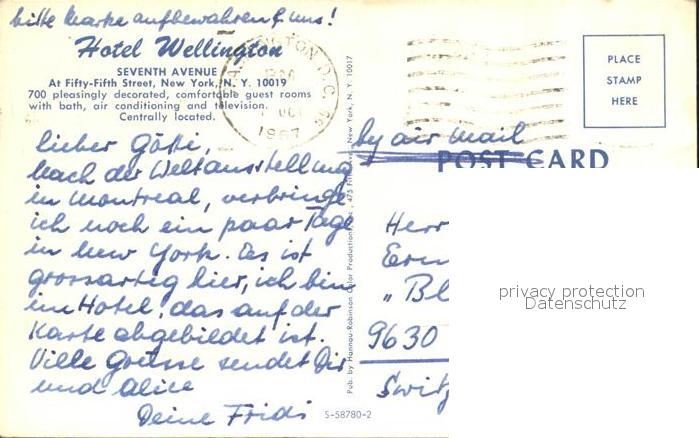 bitte Marke aufbewahren f. uns!
Hotel Wellington
SEVENTH AVENUE
At Fifty-Fifth Street, New York, N. Y. 10019
700 pleasingly decorated, comfortable guest rooms
with bath, air conditioning and television.
Centrally located.
lieber Götti,
Nach der Weltausstellung
in Montreal, verbringe
ich noch ein paar Tage
in New York. Es ist
grossartig hier, ich bin
im Hotel, das auf der
Karte abgebildet ist.
Viele Grüsse sendet Dir
und Alice
Deine Fridi
WASHINGTON D.C.
OCT
1967
Pub. by Hannau-Robinson Color Productions, Inc., 475 Fifth Ave., New York, N. Y. 10017
S-58780-2
PLACE
STAMP
HERE
by air mail
POST CARD
Herr
"Bl
9630
Switz
privacy protection
Datenschutz